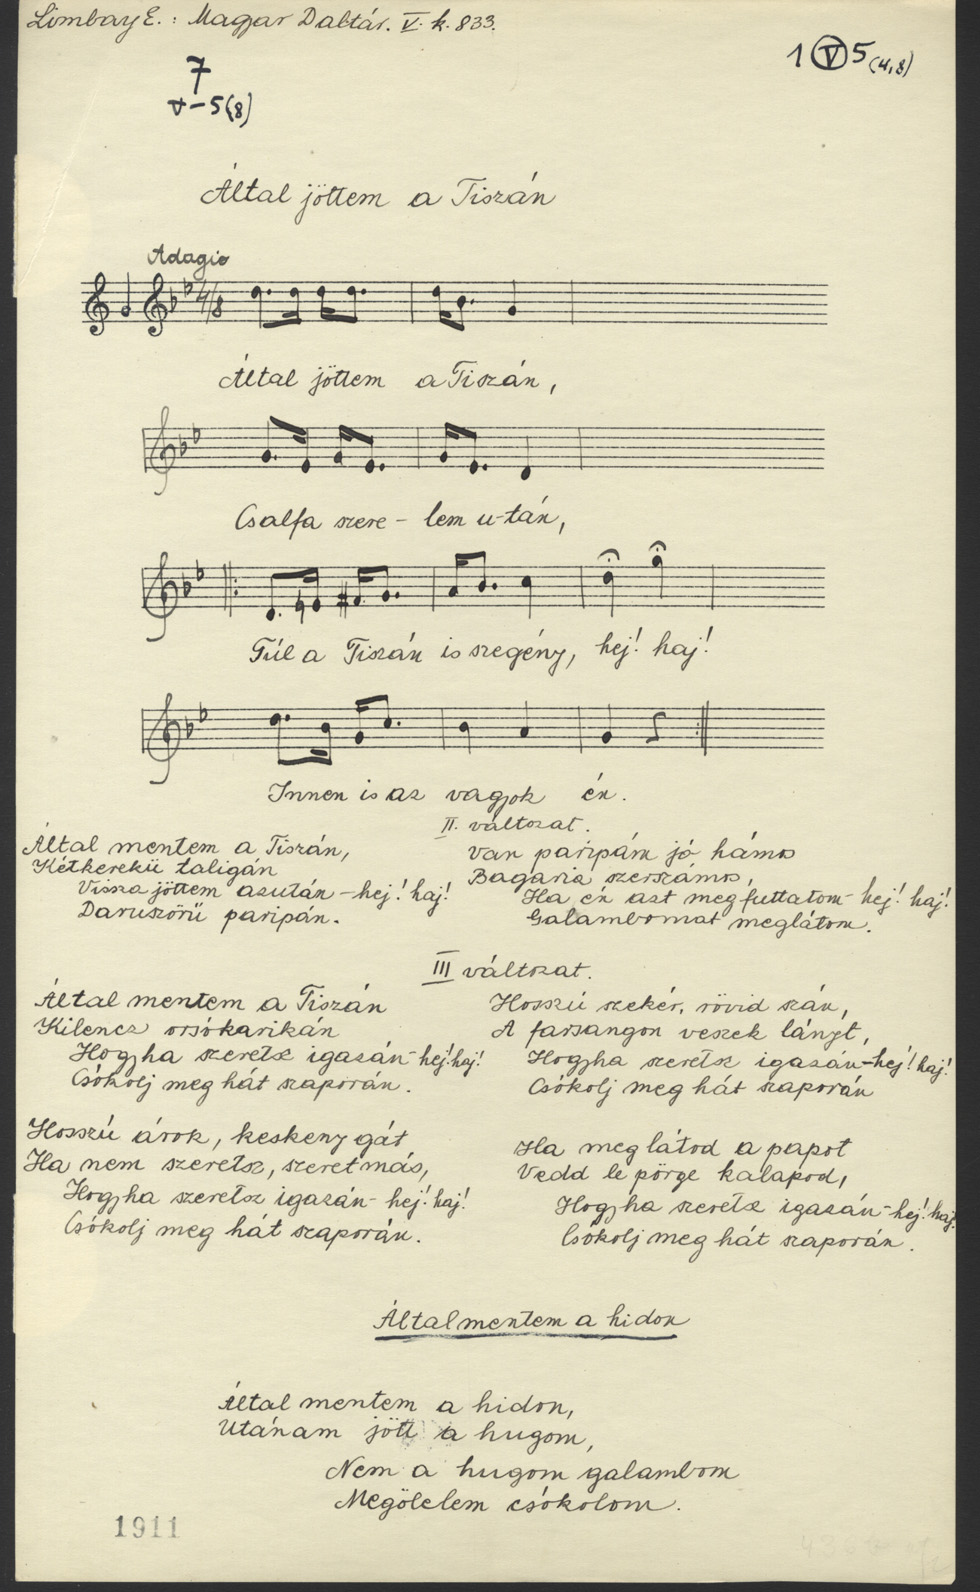 Limbay E.: Magyar Daltár. V. k. 833.
1 V 5 (4,8)
7
V-5(8)
Által jöttem a Tiszán
Adagio
4/8
Által jöttem a Tiszán,
Csalfa szere - lem u-tán,
Túl a Tiszán is szegény, hej! haj!
Innen is az vagyok én.
II. változat.
Által mentem a Tiszán,
Kétkerekü taligán
Vissza jöttem azután - hej! haj!
Daruszőrü paripán.
Van paripám jó hámos
Bagaria szerszámos,
Ha én azt megfuttatom - hej! haj!
Galambomat meglátom.
III változat.
Által mentem a Tiszán
Kilencz orsókarikán
Hogyha szeretsz igazán - hej! haj!
Csókolj meg hát szaporán.
Hosszú szekér, rövid szán,
A farsangon veszek lányt,
Hogyha szeretsz igazán - hej! haj!
Csókolj meg hát szaporán
Hosszú árok, keskeny gát
Ha nem szeretsz, szeret más,
Hogyha szeretsz igazán - hej! haj!
Csókolj meg hát szaporán.
Ha meglátod a papot
Vedd le pörge kalapod,
Hogyha szeretsz igazán - hej! haj!
Csókolj meg hát szaporán.
Által mentem a hidon
Által mentem a hidon,
Utánam jött a hugom,
Nem a hugom galambom
Megölelem csókolom.
1911